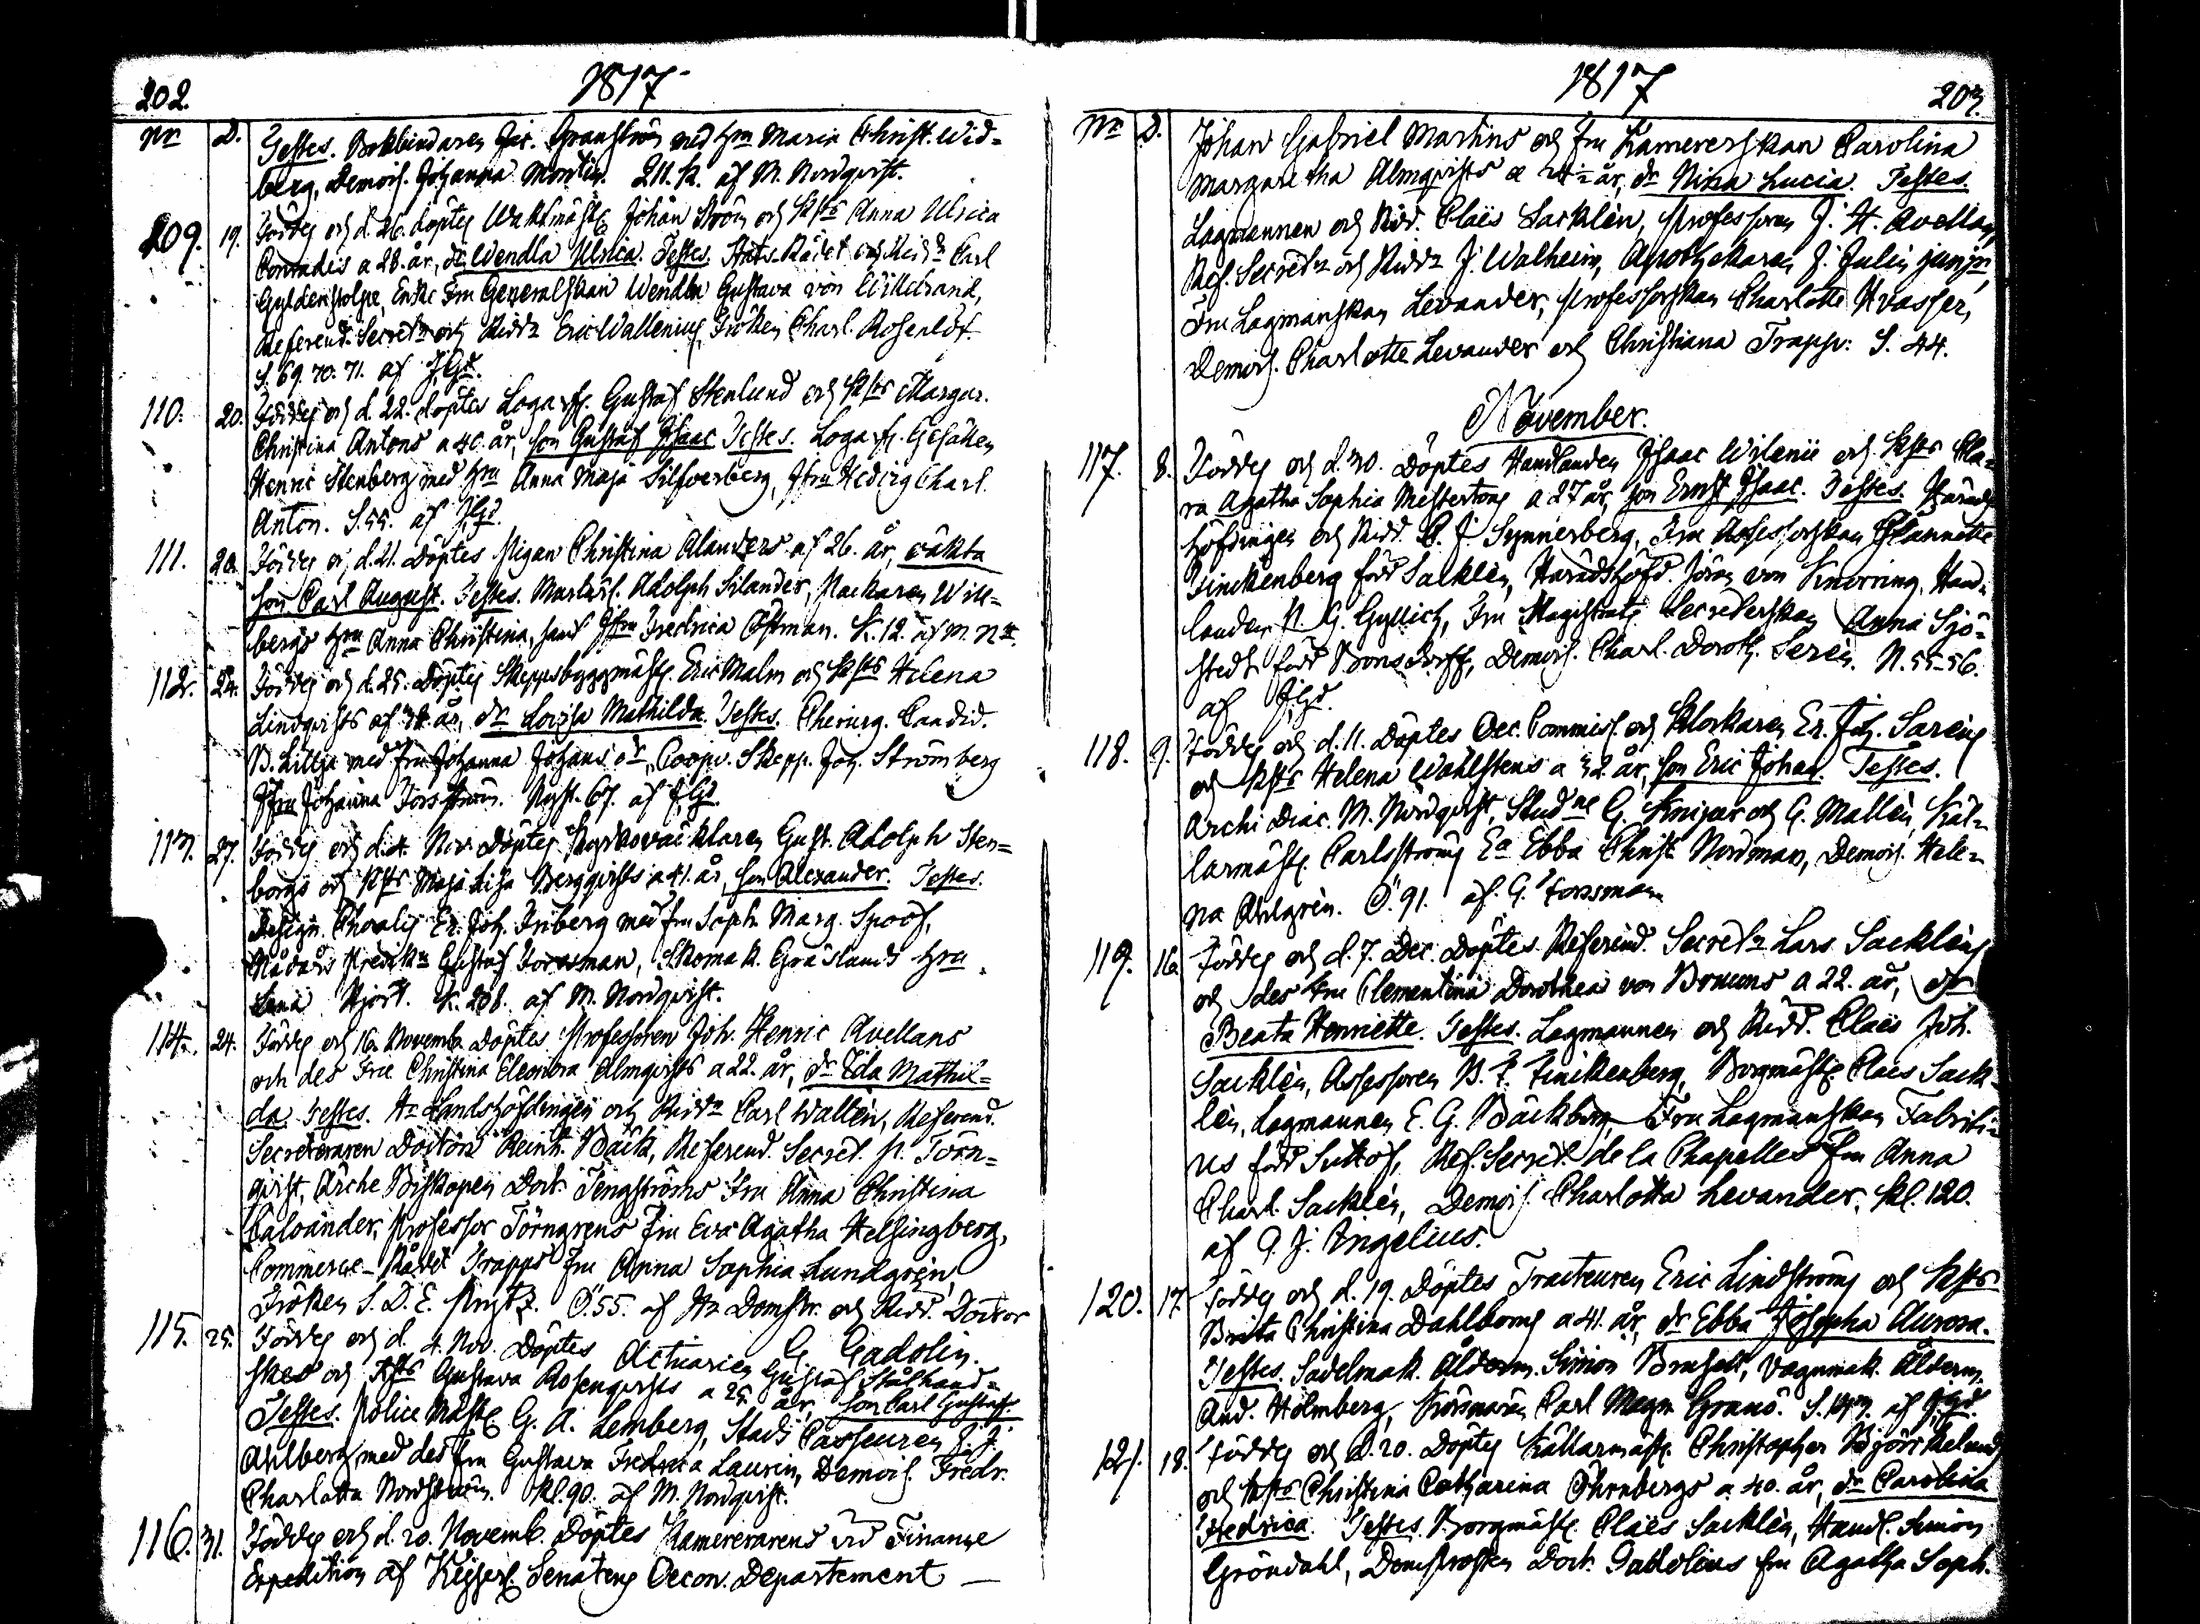 202.
1817
Nr D. Testes. Bokbindaren Jac. Granström med Hru Maria Christ. Wid=
berg, Demois. Johanna Montin. 211. K. af M. Nordqvist.
209. 19. Föddes och d. 26. döptes Waktmäst. Johan Ström och Hstrs Anna Ulrica
Conradis a 28. år, dr Wendla Ulrica. Testes. Stats-Rådet och Ridd. Carl
Gyldenstolpe, Enke Fru Generalskan Wendla Gustava von Willebrand,
Referend. Secret. och Ridd. Eric Wallenius, Fröken Charl. Rosenlöf.
S. 69. 70. 71. af
110. 20. Föddes och d. 22. döptes Logarf. Gustaf Stenlund och Hstrs Margar.
Christina Antons a 40. år, son Gustaf Isaac Testes. Logarf. Gesällen
Henric Stenberg med Hru Anna Maja Silfverberg, Jfru Hedvig Charl.
Anton. S. 55. af
111. 20. Föddes och d. 21. Döptes Pigan Christina Alanders af 26. år, oäkta
son Carl August. Testes. Adolph Silander, Packaren Will=
bergs Hru Anna Christina, samt Jfru Fredrica Östman. K. 12. af M. N
112. 24. Föddes och d. 25. Döptes Skeppsbyggmäst. Eric Malm och Hstrs Helena
Lindqvists af år, dr Lovisa Mathilda. Testes. Chirurg. Candid.
B. Lillja med Fru Johanna Johans dr, Coopv. Skepp. Joh. Strömberg
Jfru Johanna Forsström. 67. af
113. 27. Föddes och d. 4. Nov. Döptes Gust. Adolph Sten=
borgs och Hstrs Maja Lisa Bergqvists a 41. år, son Alexander. Testes.
Er. Joh. Friberg med fru Soph. Marg. Spoof,
Gustaf Forssman, Skomak. Gräslunds Hru
Lena Hjort. K. 208. af M. Nordqvist.
114. 24. Föddes och 16. Novemb. Döptes Professoren Joh. Henric Avellans
och des Fru Christina Eleonora Almqvists a 22. år, dr Ida Mathil=
da. Testes. Hr Landshöfdingen och Ridd. Carl Wallèn, Referend.
Secreteraren Doctor Reinh. Bäck, Referend. Secret. P. Törn=
qvist, Arche Biskopen Doct. Tengströms Fru Anna Christina
Caloander, Professor Törngrens Fru Eva Agatha Helsingberg,
Commerce-Rådet Trapps Fru Anna Sophia Lundgrèn,
Fröken S. D. E. Prytz. Ö. 55. af Hr Domstr. och Ridd. Doctor
G. Gadolin.
115. 25. Föddes och d. 4. Nov. Döptes Actuarien Gustaf Stålhand=
skes och Hstrs Gustava Rosenqvists a 25. år, son Carl Gustaf.
Testes. Police Mäst. G. A. Lemberg, Stads Casseuren J. J.
Ahlberg med des fru Gustava Fredrica Laurin, Demois. Fredr.
Charlotta Nordström. Kl. 90. af M. Nordqvist.
116. 31. Föddes och d. 20. Novemb. Döptes Kamererarens vid Finance
Expedition af Kejserl. Senatens Oecon. Departement —
1817
203.
Nr D. Johan Gabriel Martins och Fru Kamererskan Carolina
Margaretha Almqvists a år, dr Nina Lucia. Testes.
Lagmannen och Ridd. Claës Sacklèn, Professoren J. H. Avellan,
Ref. Secret. och Ridd. J. Walheim, Apothekaren J. Julin junjr,
Fru Lagmanskan Levander, Professorskan Charlotte Hvasser,
Demois. Charlotte Levander och Christiana Trapp. S. 44.
November.
117. 8. Föddes och d. 30. Döptes Handlanden Isaac Wilenii och Hstrs Cla=
ra Agatha Sophia Meltertong a 27 år, son Ernst Isaac. Testes. Härads
höfdingen och Ridd. C. J. Synnerberg, Fru Assessorskan Jeannette
Finckenberg född Sacklèn, Häradshöfd. Jöran von Knorring, Hand=
landen N. G. Gyllich, Fru Magistrats Secreterskan Anna Sjö=
stedt född Bonsdorff, Demois. Charl. Doroth. Serèn. N. 55-56.
af
118. 9. Föddes och d. 11. Döptes Oec. Commiss. och Klockaren Er. Joh. Sarèns
och Hstrs Helena Wahlstens a 32. år, son Eric Johan. Testes.
Archi Diac. M. Nordqvist, Stud. G. Krigar och G. Mallèn, Käl=
larmäst. Carlströms Ea Ebba Christ. Nordman, Demois. Hele=
na Ahlgrèn. Ö. 91. af. G. Forssman
119. 16. Föddes och d. 7. Dec. Döptes Referend. Secret. Lars Sacklèns
och des Fru Clementina Dorothea von Brauns a 22. år, dr
Beata Henriette. Testes. Lagmannen och Ridd. Claës Joh.
Sacklèn, Assessoren B. F. Finckenberg, Borgmäst. Claës Sack=
lèn, Lagmannen E. G. Bäckberg, Fru Lagmanskan Fabriti=
us född Suttof, Ref. Secret. de la Chapelles fru Anna
Charl. Sacklèn, Demois. Charlotta Levander. Kl. 120.
af G. J. Ingelius.
120. 17. Föddes och d. 19. Döptes Tracteuren Eric Lindströms och Hstrs
Brita Christina Dahlboms a 41. år, dr Ebba Josepha Aurora.
Testes. Sadelmak. Ålderm. Simon Brusell, Vagnmak. Ålderm.
And. Holmberg, Carl Magn. Granö. S. af
121. 18. Föddes och d. 20. Döptes Källarmäst. Christopher Björckelunds
och Hstrs Christina Catharina Öhrnbergs a 40. år, dr Carolina
Fredrica. Testes. Borgmäst. Claës Sacklèn, Handl. Simon
Gröndahl, Domprosten Doct. Gadolins fru Agatha Soph.